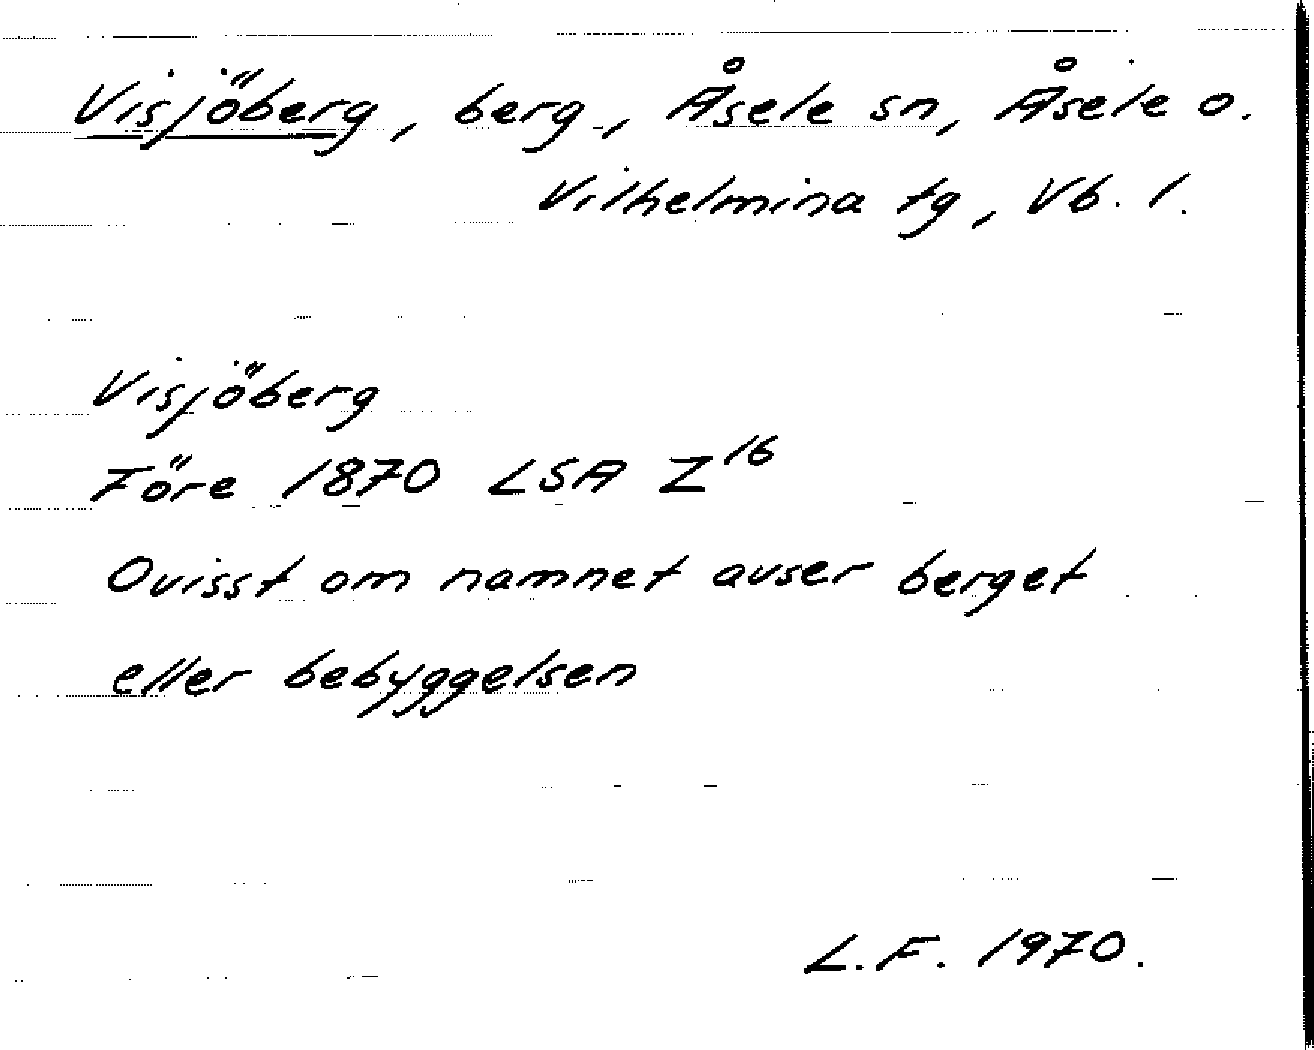 Visjöberg, berg, Åsele sn, Åsele o.
Vilhelmina tg, Vb. l.
Visjöberg
Före 1870 LSA Z¹⁶
Ovisst om namnet avser berget
eller bebyggelsen
L.F. 1970.